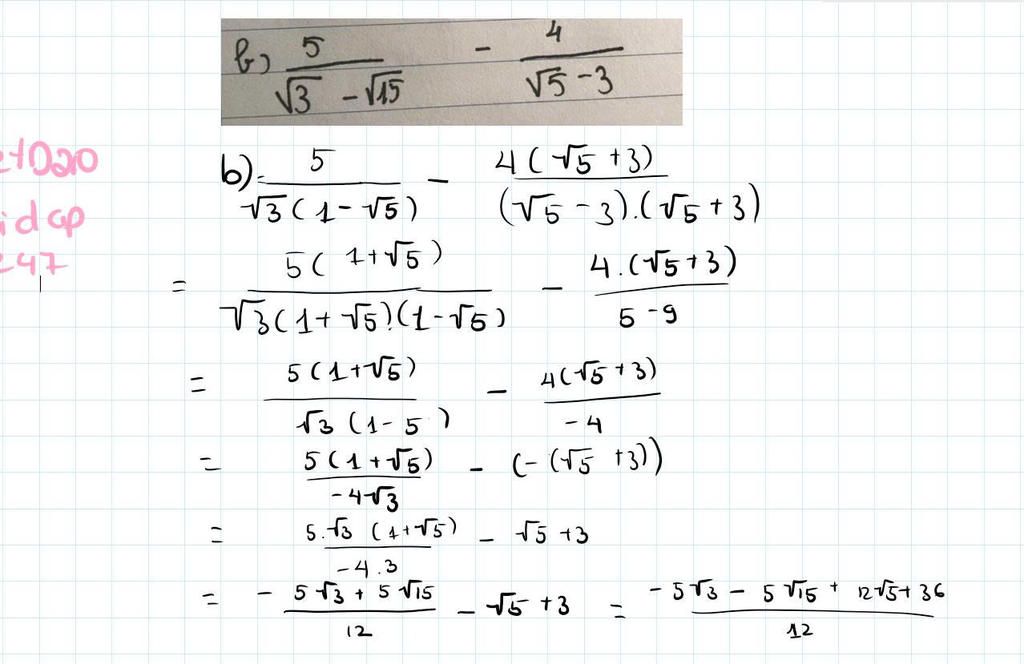 b) 5/(√3 - √15) - 4/(√5 - 3)
b) 5/(√3(1-√5)) - 4(√5+3)/((√5-3).(√5+3))
= 5(1+√5)/(√3(1+√5)(1-√5)) - 4.(√5+3)/(5-9)
= 5(1+√5)/(√3(1-5)) - 4(√5+3)/(-4)
= 5(1+√5)/(-4√3) - (-(√5+3))
= 5.√3(1+√5)/(-4.3) - √5+3
= - (5√3+5√15)/12 - √5+3 = (-5√3 - 5√15 + 12√5 + 36)/12
id qp
247